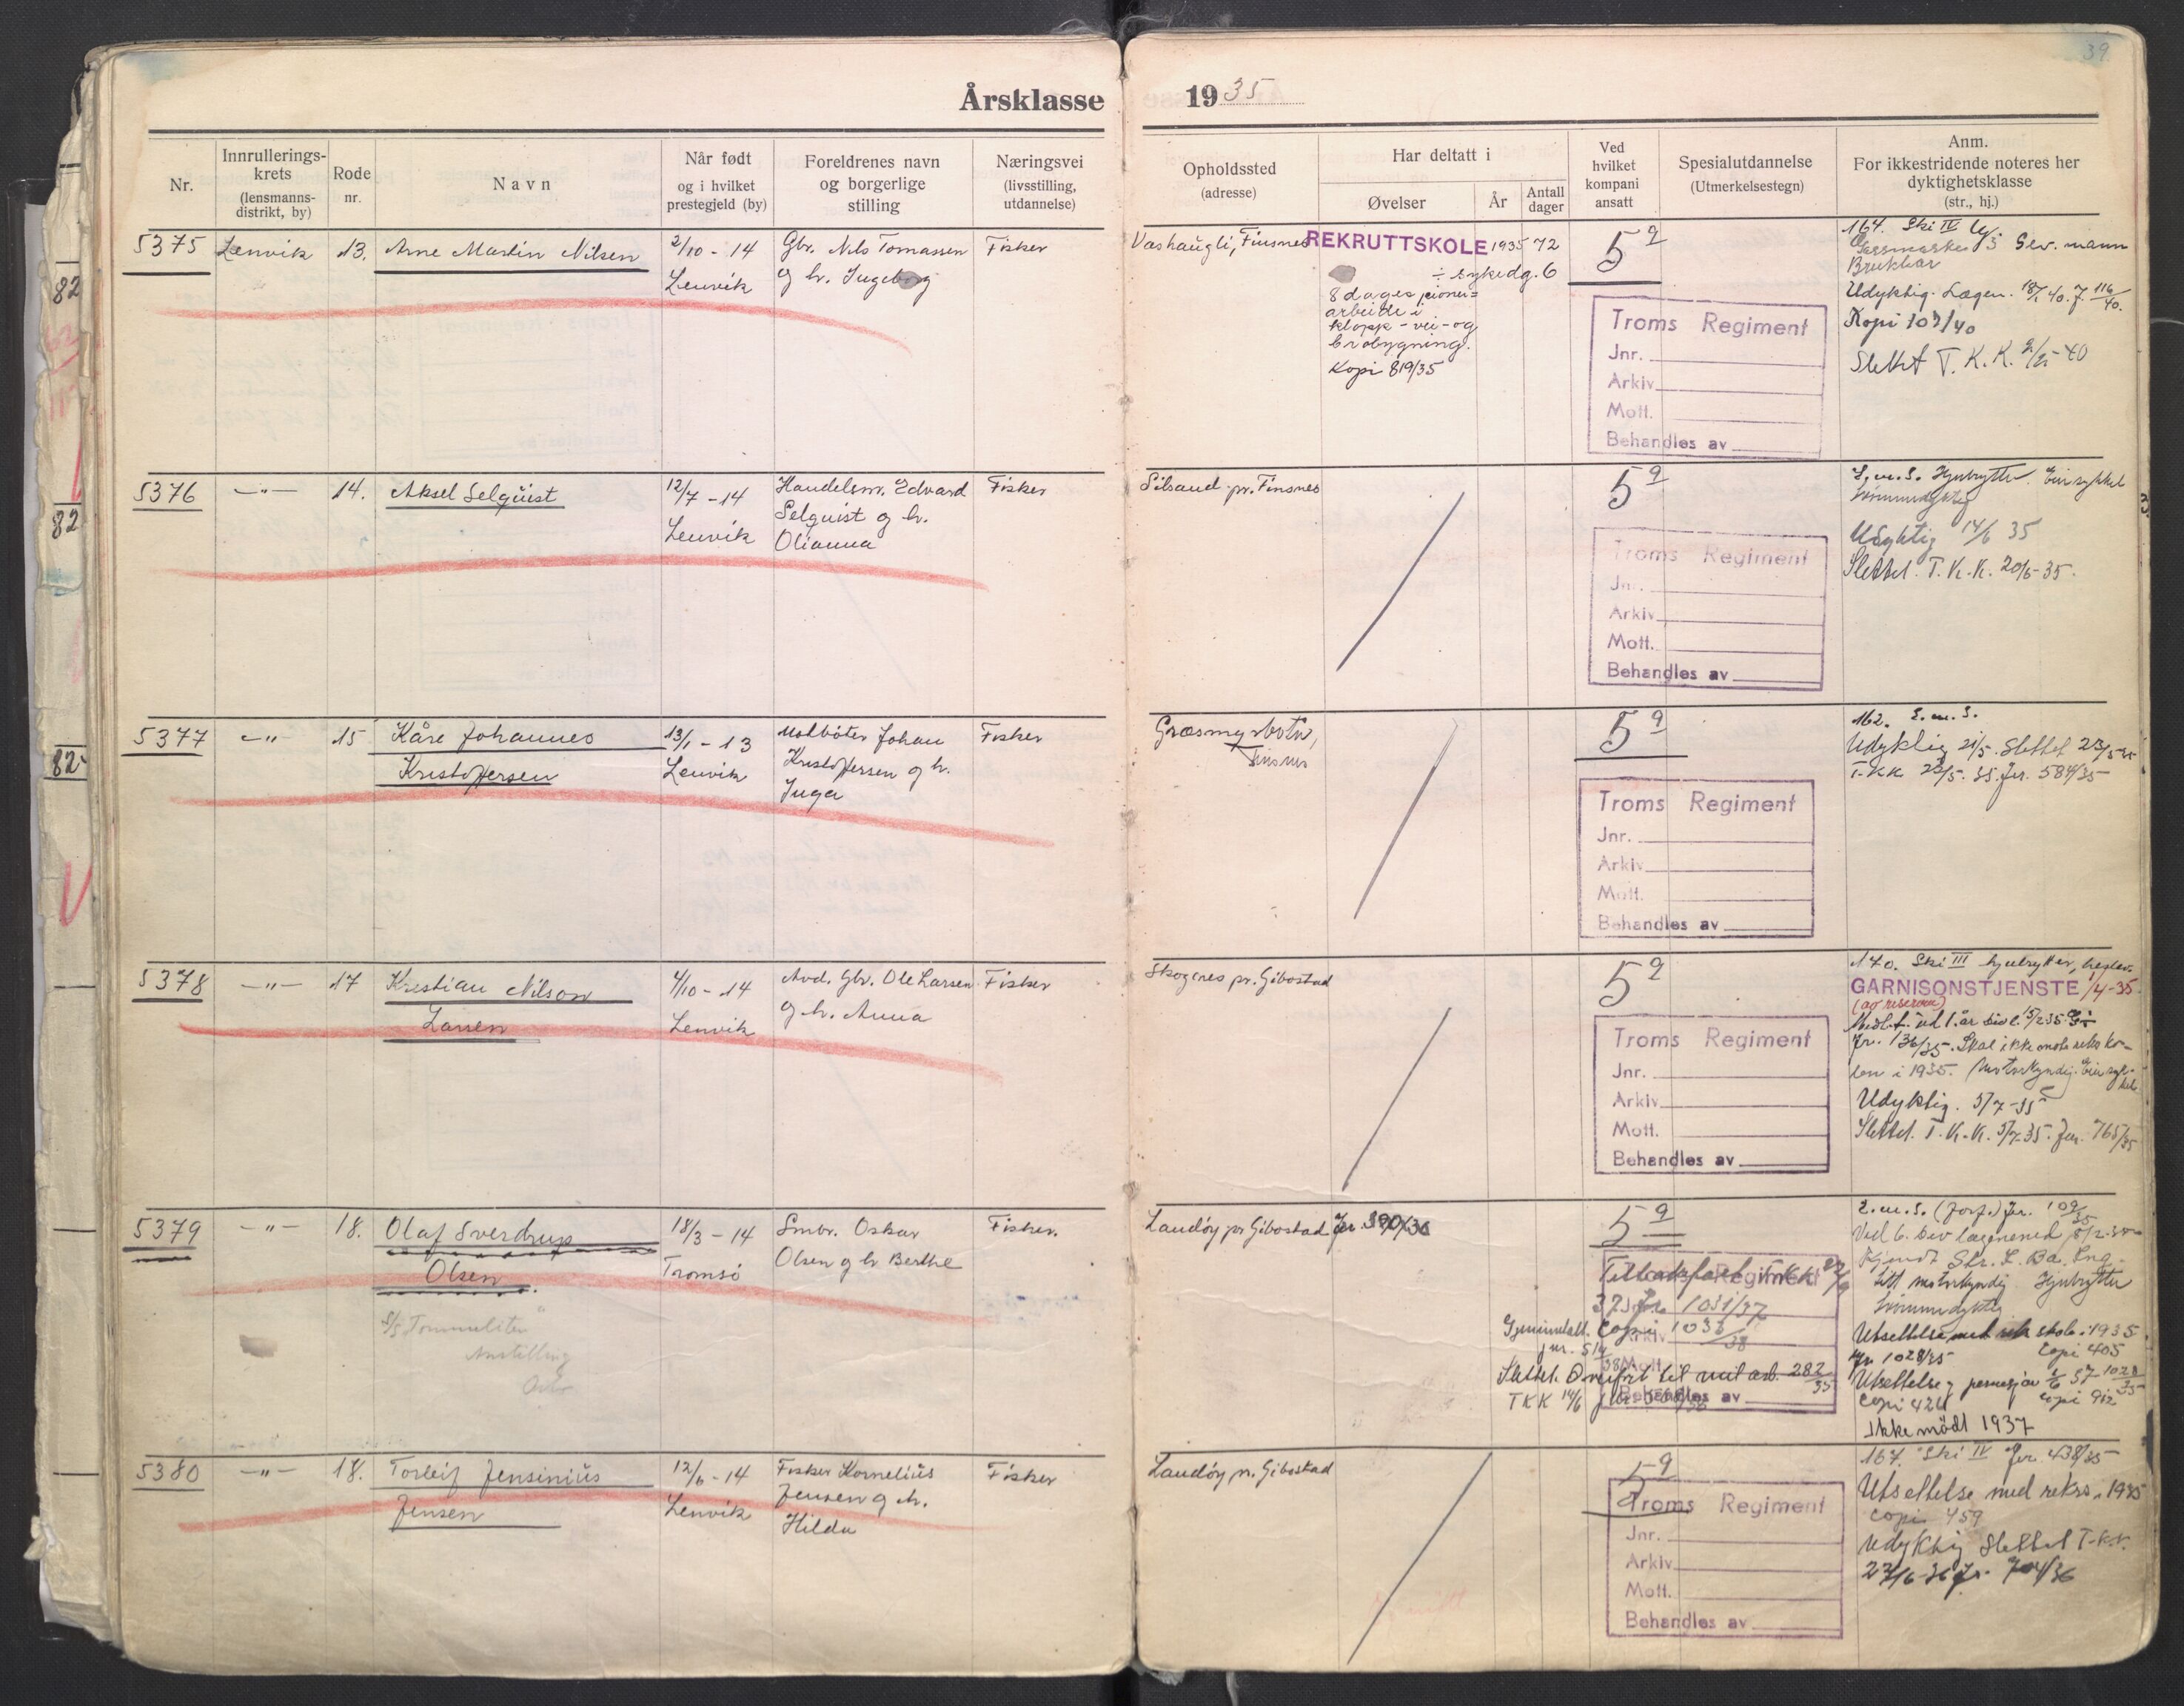 39
Årsklasse 1935
Nr.
Innrullerings-
krets
(lensmanns-
distrikt, by)
Rode
nr.
Navn
Når født
og i hvilket
prestegjeld (by)
Foreldrenes navn
og borgerlige
stilling
Næringsvei
(livsstilling,
utdannelse)
Opholdssted
(adresse)
Har deltatt i
Øvelser
År
Antall
dager
Ved
hvilket
kompani
ansatt
Spesialutdannelse
(Utmerkelsestegn)
Anm.
For ikkestridende noteres her
dyktighetsklasse
(str., hj.)
5375 Lenvik 13. Arne Martin Nilsen
2/10 - 14
Lenvik
Gbr. Nils Tomassen
og h. Ingeborg
Fisker
Vashaugli, Finsnes
REKRUTTSKOLE 1935 72
÷ sykedg. 6
8 dages pioner=
arbeide i
klopp-vei-og
brobygning.
Kopi 819/35
5a
Troms Regiment
Jnr.
Arkiv
Mott.
Behandles av
164. Ski IV
Gassmaske 3 Gev. mann
Brukbar
Udyktig. Lægen. 18/1 40. J. 116/40.
Kopi 103/40
Slettet T.K.K. 2/2-40
5376 -"- 14. Aksel Selquist
12/7 - 14
Lenvik
Handelsm. Edvard
Selquist og h.
Olianna
Fisker
Silsand pr. Finsnes
5a
Troms Regiment
Jnr.
Arkiv
Mott.
Behandles av
Hjulrytter
Svømmedyktig
Udyktig 14/6 35
Slettet. T.K.K. 20/6-35.
5377 -"- 15 Kåre Johannes
Kristoffersen
13/1 - 13
Lenvik
Johan
Kristoffersen og h.
Inga
Fisker
Græsmyrbotn,
Finsnes
5a
Troms Regiment
Jnr.
Arkiv
Mott.
Behandles av
162. S.m.S.
Udyktig 21/5. Slettet 23/5 35
T.KK 23/5. 35. Jnr. 584/35
5378 -"- 17 Kristian Nilson
Larsen
4/10 - 14
Lenvik
Avd. Gbr. Ole Larsen
og h. Anna
Fisker
Skogenes pr. Gibostad
5a
Troms Regiment
Jnr.
Arkiv
Mott.
Behandles av
170. Ski III hjulrytter,
GARNISONSTJENSTE 1/4-35
(og reserven)
Jr. 136/35. Skal ikke møte reksko-
len i 1935. Motorkyndig.
Udyktig. 5/7-35
Slettet. T.K.K. 5/7-35. Jnr. 765/35
5379 -"- 18. Olaf Sverdrup
Olsen
18/3 - 14
Tromsö
Smbr. Oskar
Olsen og h Berthe
Fisker.
Tommeliten
Landöy pr Gibostad Jnr. 590/36
5a
Troms Regiment
1031/37
Copi 1036/38
jnr. 514/38
Slettet. Overført til mil arb. 282/35
TKK 14/6
Mott.
Behandles av
S.m.S. (Forf.) Jr. 109/35
Ved 6. Div
motorkyndig Hjulrytter
Svømmedyktig
Utsettelse med rek skole i 1935
Jr 1028/35 Copi 405
Utsettelse
Copi 424
Ikke mödt 1937
5380 -"- 18. Torleif Jensinius
Jensen
12/6 - 14
Lenvik
Fisker Kornelius
Jensen og h.
Hilda
Fisker
Landöy pr. Gibostad
5a
Troms Regiment
Jnr.
Arkiv
Mott.
Behandles av
167. Ski IV Jnr. 438/35
Utsettelse med reksk. 1935
Copi 459
Udyktig Slettet T.K.K.
23/6-36 Jr. 704/36
82
82
82